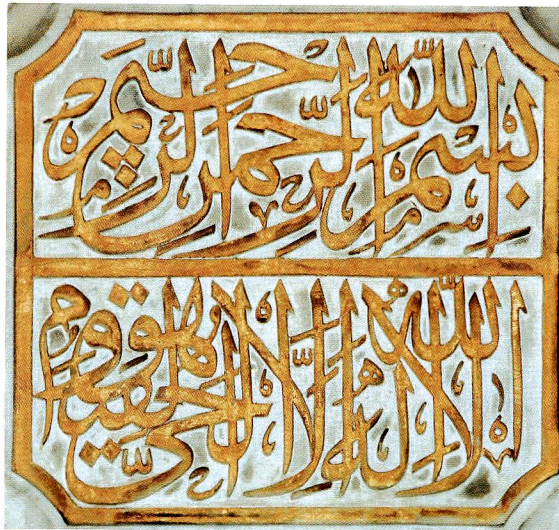 بسم الله الرحمن الرحيم
الله لا إله إلا هو الحي القيوم